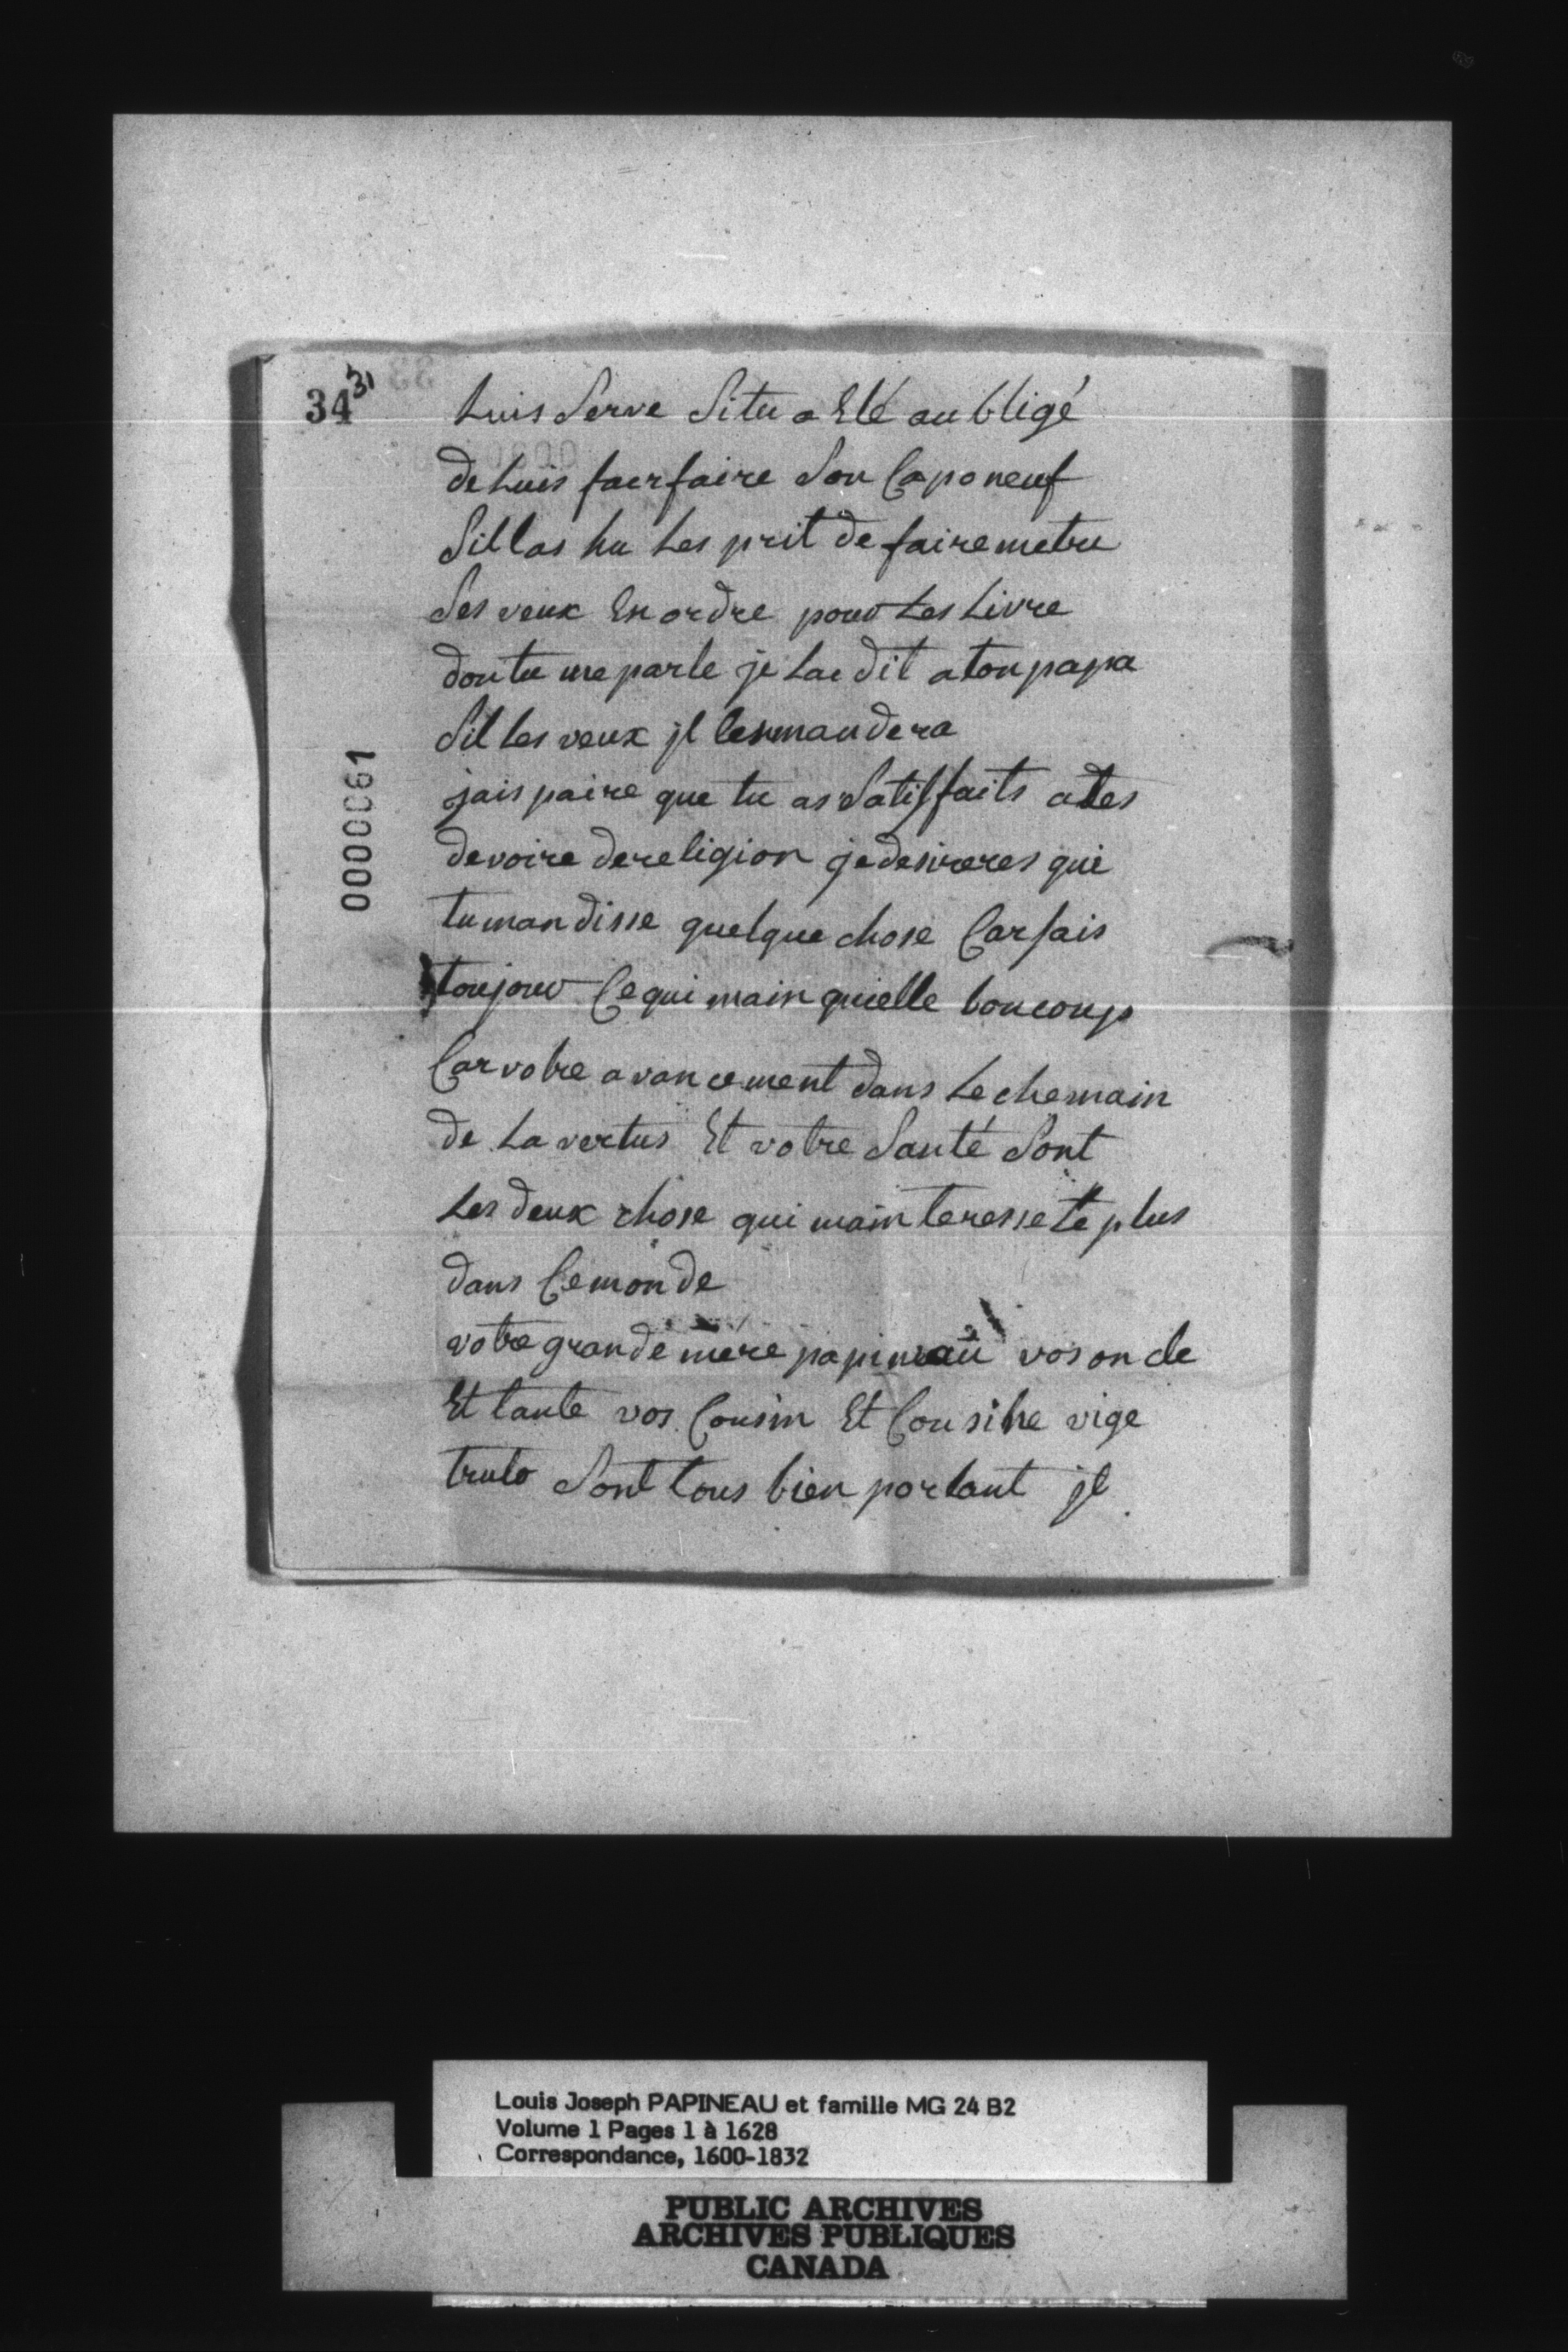 34 31
Luis Serve Si tu a Eté aubligé
de Luis faer faire Son Capo neuf
Sil las hu Les prit de faire metre
Ses veux En ordre pour Les Livre
don tu me parle je Lae dit a ton papa
Sil Les veux jl les mandera
jais paire que tu as Satisfaits a tes
devoire de religion je desireres que
tu man disse quelque chose Car sais
toujour Ce qui main quielle boucoup
Car votre avancement dans Le chemain
de La vertus Et votre Santé Sont
Les deux chose qui main teresse Le plus
dans Ce monde
votre grande mere papineau vos oncle
Et tante vos Cousin Et Cousine vige
truto Sont tous bien portant jl
0000061
Louis Joseph PAPINEAU et famille MG 24 B2
Volume 1 Pages 1 à 1628
Correspondance, 1600-1832
PUBLIC ARCHIVES
ARCHIVES PUBLIQUES
CANADA